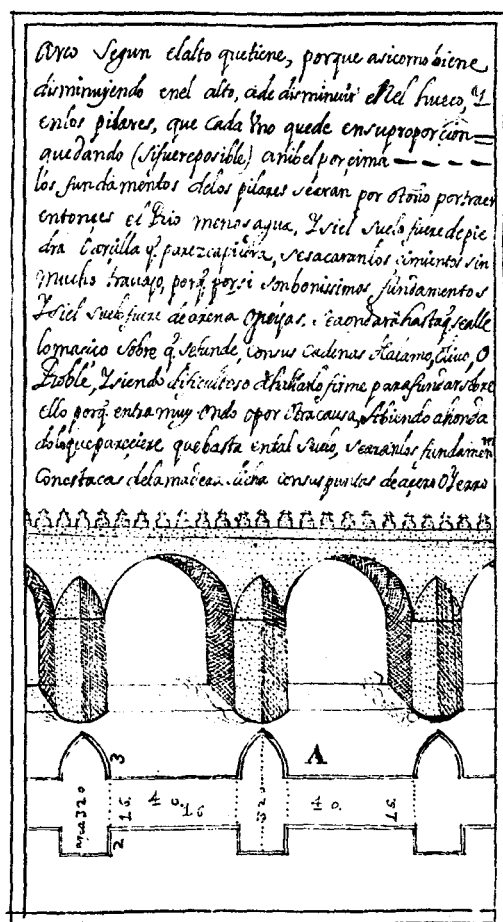 arco segun el alto que tiene, porque asi como biene
disminuyendo en el alto, a de disminuir en el hueco, Y
en los pilares, que cada Uno quede en su proporçion
quedando (si fuere posible) a nibel por çima
los fundamentos de los pilares se aran por otoño por traer
entonçes el Rio menos agua, Y si el suelo fuere de pie
dra o arçilla q. parezca piedra, se sacaran los çimientos sin
mucho travajo, porq. por si son bonissimos fundamentos
Y si el suelo fuere de arena o guijas, se aondara hasta q. se alle
lo masiço sobre q. se funde, con sus cadenas de alamo, olivo, O
Roble, Y siendo dificultoso de hallarlo firme para fundar sobre
ello porq. entra muy ondo o por otra causa, abiendo ahonda
do lo que pareçiere que basta en tal suelo, se aran los fundamen
con estacas de la madera dicha con sus puntas de açero O Yerro
3 A
area 320 16. 40. 16 320 40. 16.
2